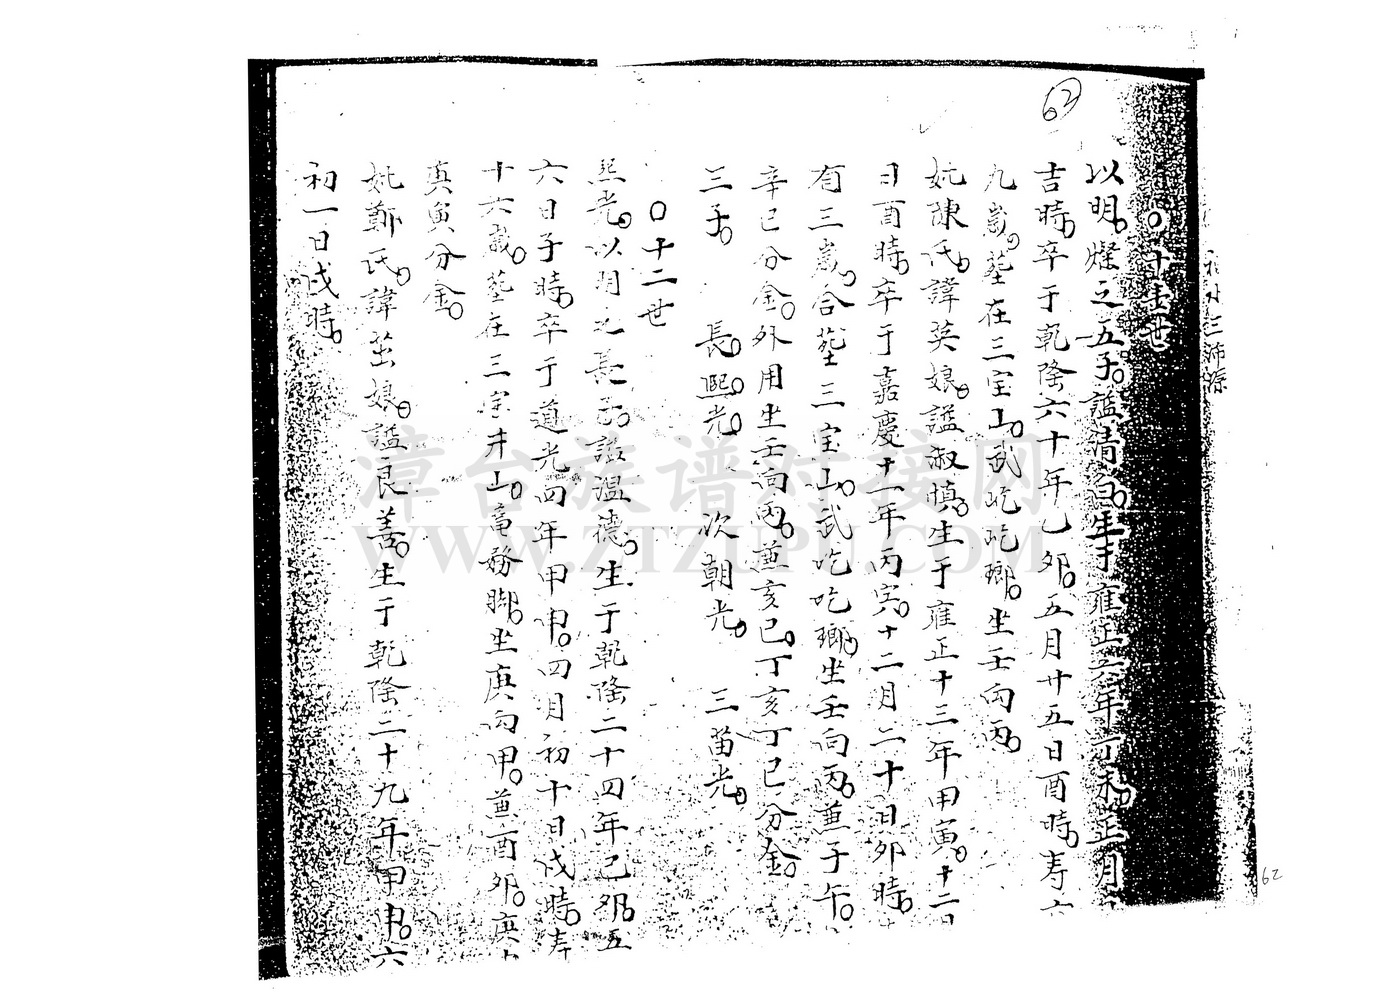 62
〇十壹世
以明。燦之五子。諡清白。生于雍正六年丁未。正月
吉時。卒于乾隆六十年乙夘。五月廿五日酉時。寿六
九歲。葬在三宝山。武吃吃瑯。坐壬向丙。
妣陳氏。諱英娘。諡淑慎。生于雍正十三年甲寅。十二
日酉時。卒于嘉慶十一年丙寅。十二月二十日夘時。
有三歲。合葬三宝山。武吃吃瑯。坐壬向丙。兼子午。
辛巳分金。外用坐壬向丙。兼亥巳。丁亥丁巳分金。
三子。 長。熙。光。 次朝光。 三苗光。
〇十二世
熙光。以明之長子。諡溫德。生于乾隆二十四年己夘。五
六日子時。卒于道光四年甲申。四月初十日戌時。寿
十六歲。葬在三宝井山。高務脚。坐庚向甲。兼酉夘。庚
寅寅分金。
妣鄭氏。諱茁娘。諡良善。生于乾隆二十九年甲申。六
初一日戌時。
漳台族谱对接网
WWW.ZTZUPU.COM
62